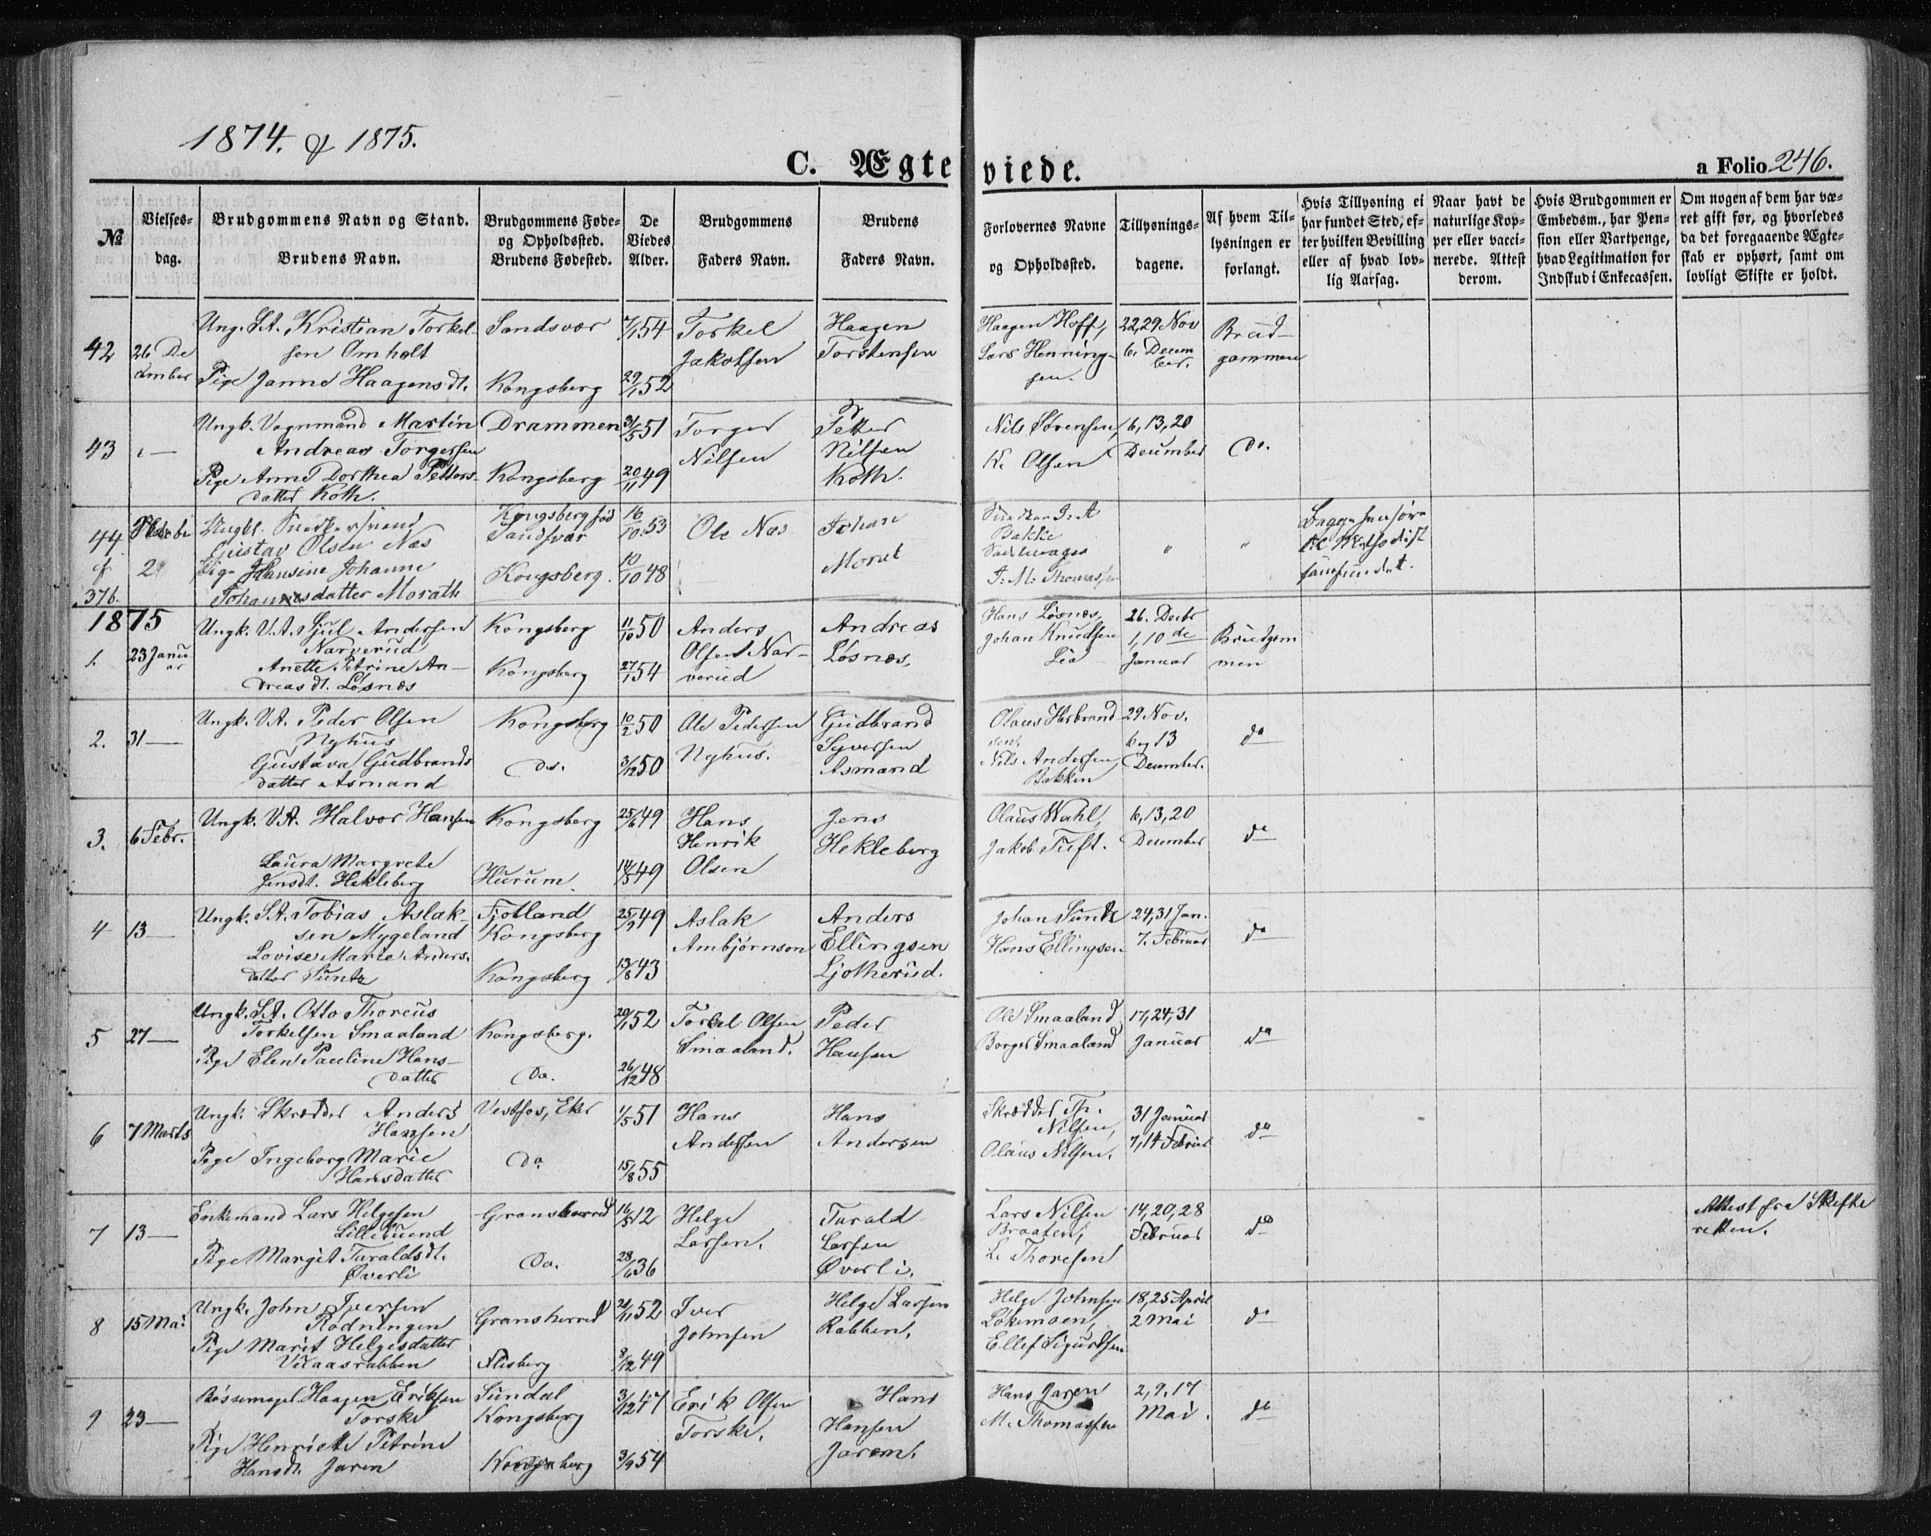 1874. & 1875.
C. Ægteviede.
a Folio 246.
No
Vielses-dag.
Brudgommens Navn og Stand.
Brudens Navn.
Brudgommens Føde-
og Opholdssted.
Brudens Fødested.
De
Viedes
Alder.
Brudgommens
Faders Navn.
Brudens
Faders Navn.
Forlovernes Navne
og Opholdssted.
Tillysnings-
dagene.
Af hvem Til-
lysningen er
forlangt.
Hvis Tillysning ei
har fundet Sted, ef-
ter hvilken Bevilling
eller af hvad lov-
lig Aarsag.
Naar havt de
naturlige Kop-
per eller vacci-
nerede. Attest
derom.
Hvis Brudgommen er
Embedsm., har Pen-
sion eller Vartpenge,
hvad Legitimation for
Indskud i Enkecassen.
Om nogen af dem har væ-
ret gift før, og hvorledes
da det foregaaende Ægte-
skab er ophørt, samt om
lovligt Skifte er holdt.
42 26 De
cember
Ung. S.A. Kristian Torkel
sen Omholt
Pige Janne Haagensdt.
Sandsvær
Kongsberg
7/1 54
29/1 52
Torkel
Jakobsen
Haagen
Torstensen
Haagen Hoff,
Lars Henning-
sen.
22,29 Nov
6. Decem
ber.
Brud-
gommen
43
Ungk. Vognmand Martin
Andreas Torgersen
Pige Anne Dorthea Petters-
datter Koth.
Drammen
Kongsberg
3/5 51
20/11 49
Torger
Nilsen
Petter
Nilsen
Koth.
Nils Sørensen,
K. Olsen
6,13,20
December
Do.
44
f
376.
2
Ungk. Snedkersvend
Gustav Olsen Næs
Pige Hansine Johanne
Johannesdatter Morath
Kongsberg fød
Sandsvær
Kongsberg.
16/10 53
10/10 48
Ole Næs
Johan
Morat
Bakke
Sadelmager
J. M. Thomassen
" "
Begge henhøre
til Methodist
samfundet.
1875
1. 23 Janu
ar
Ungk. V.A. Sjul Andersen
Narverud
Anette Petrine An-
dreasdt. Løsnæs
Kongsberg
Kongsberg
11/10 50
27/1 54
Anders
Olsen Nar-
verud
Andreas
Løsnæs.
Hans Løsnæs,
Johan Knudsen
Lia
26. Decbr
1,10 de
Januar
Brudgom
men
2. 31
Ungk. V.A. Peder Olsen
Nyhus
Gustava Gudbrands
datter Asmand
Kongsberg
Do.
10/2 50
3/12 50
Ole Pedersen
Nyhus.
Gudbrand
Syversen
Asmand
Olaus Herbrand
sen.
Nils Andersen
Bakken
29 Nov.
6 og 13
December.
do
3. 6 Febr.
Ungk. V.A. Halvor Hansen
Laura Margrete
Jensdt. Hekleberg
Kongsberg
Hurum.
25/6 49
14/5 49
Hans
Henrik
Olsen
Jens
Hekleberg
Olaus Wahl,
Jakob Tuft.
6,13,20
December
do
4 13
Ungk. S.A. Tobias Aslak-
sen Mygeland
Lovise Marie Anders-
datter Sunte
Fjotland
Kongsberg
Kongsberg
25/9 49
13/8 43
Aslak
Ambjørnson
Anders
Ellingsen
Ljotherud.
Johan Sunde
Hans Ellingsen
24,31 Jan.
7. Februar
do
5 27
Ungk. S.A. Otto Thoreus
Torkelsen Smaaland
Pige Elen Pauline Hans-
datter
Kongsberg.
Do.
29/1 52
26/12 48
Torkel Olsen
Smaaland.
Peder
Hansen
Ole Smaaland
Borger Smaaland
17,24,31
Januar
do
6 7 Marts
Ungk. Skrædder Anders
Hansen
Pige Ingeborg Marie
Hansdatter
Vestfos, Eker
Do.
1/5 51
15/8 55
Hans
Andersen
Hans
Andersen
Skrædder Th.
Nilsen,
Olaus Nilsen.
31 Januar
7,14 Februar
do
7 13
Enkemand Lars Helgesen
Lilletuend
Pige Margit Taraldsdt.
Øverli
Gransherred
Do.
16/5 12
28/6 36
Helge
Larsen.
Tarald
Larsen
Øverli.
Lars Nilsen
Braaten,
L. Thoresen
14,20,28
Februar
do
Attest fra Skifte
retten.
8 15 Mai
Ungk. John Iversen
Rodningen
Pige Marit Helgesdatter
Vuaasrabben
Gransherred
Flesberg
24/11 52
8/12 49
Iver
Johnsen
Helge Larsen
Rabben.
Helge Johnsen
Løkemoen,
Ellef Sigurdsen
18,25 April
2 Mai
do
9 23
Bøssemager Haagen Eriksen
Torske
Pige Henriette Petrine
Hansdt. Jaren
Sundal
Kongsberg
Kongsberg
3/12 47
3/9 54
Erik Olsen
Torske.
Hans
Hansen
Jaren.
Hans Jaren
M. Thomassen
2,9,17
Mai.
do